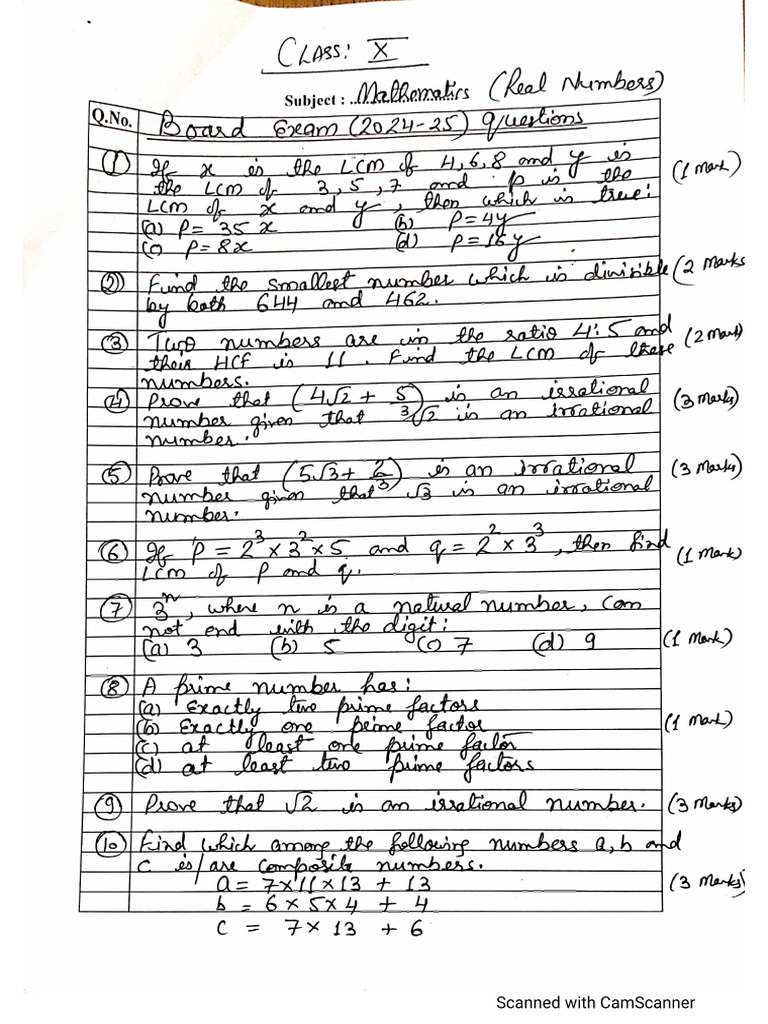 CLASS: X
Subject : Mathematics (Real Numbers)
Q.No. Board Exam (2024-25) Questions
(1) If x is the LCM of 4, 6, 8 and y is (1 Mark)
the LCM of 3, 5, 7 and p is the
LCM of x and y, then which is true:
(a) P = 35x (b) P = 4y
(c) P = 8x (d) P = 16y
(2) Find the smallest number which is divisible (2 Marks
by both 644 and 462.
(3) Two numbers are in the ratio 4:5 and (2 Mark)
their HCF is 11. Find the LCM of these
numbers.
(4) Prove that (4√2 + 5/3) is an irrational (3 Marks)
number given that √2 is an irrational
number.
(5) Prove that (5√3 + 2/3) is an irrational (3 Marks)
number given that √3 is an irrational
number.
(6) If P = 2³ × 3² × 5 and q = 2² × 3³, then find (1 Mark)
LCM of P and q.
(7) 3ⁿ, where n is a natural number, can
not end with the digit:
(a) 3 (b) 5 (c) 7 (d) 9 (1 Mark)
(8) A prime number has:
(a) Exactly two prime factors
(b) Exactly one prime factor (1 Mark)
(c) at least one prime factor
(d) at least two prime factors
(9) Prove that √2 is an irrational number. (3 Marks)
(10) Find which among the following numbers a, b and
c is/are composite numbers.
a = 7×11×13 + 13 (3 Marks)
b = 6×5×4 + 4
c = 7×13 + 6
Scanned with CamScanner